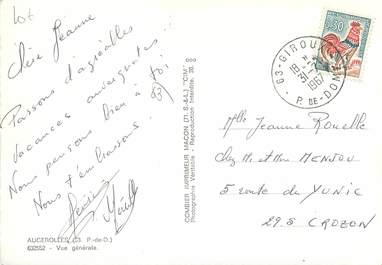 Lot
Chère Jeanne
Passons d'agréables
vacances auvergnates.
Nous pensons bien à toi
Nous t'embrassons.
63
AUGEROLLES (63. P.-de-D.)
632552 - Vue générale.
COMBIER IMPRIMEUR MACON (71. S.-&-L.) "CIM"
Photographie Véritable - Reproduction Interdite.
0.30
63-GIROUX
18 H
31 -7
1967
P. DE-DOME
Mlle Jeanne Rouelle
Chez Mr et Mme MENJOU
5 route de
29.S CROZON